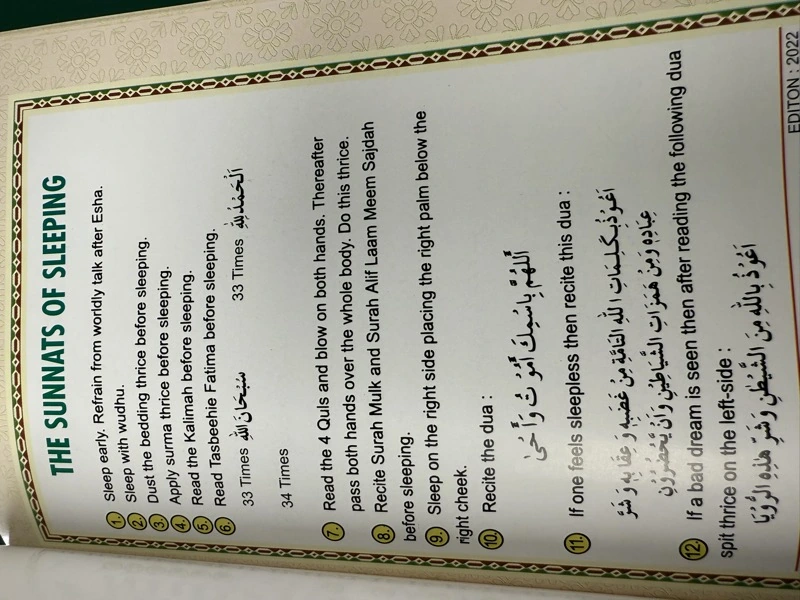 THE SUNNATS OF SLEEPING
1. Sleep early. Refrain from worldly talk after Esha.
2. Sleep with wudhu.
3. Dust the bedding thrice before sleeping.
4. Apply surma thrice before sleeping.
5. Read the Kalimah before sleeping.
6. Read Tasbeehie Fatima before sleeping.
33 Times سُبْحَانَ اللّٰهِ 33 Times اَلْحَمْدُ لِلّٰهِ
34 Times
7. Read the 4 Quls and blow on both hands. Thereafter
pass both hands over the whole body. Do this thrice.
8. Recite Surah Mulk and Surah Alif Laam Meem Sajdah
before sleeping.
9. Sleep on the right side placing the right palm below the
right cheek.
10. Recite the dua :
اَللّٰهُمَّ بِاسْمِكَ اَمُوْتُ وَاَحْيٰ
11. If one feels sleepless then recite this dua :
اَعُوْذُ بِكَلِمَاتِ اللّٰهِ التَّامَّةِ مِنْ غَضَبِهٖ وَعِقَابِهٖ وَشَرِّ
عِبَادِهٖ وَمِنْ هَمَزَاتِ الشَّيَاطِيْنِ وَاَنْ يَّحْضُرُوْنِ
12. If a bad dream is seen then after reading the following dua
spit thrice on the left-side :
اَعُوْذُ بِاللّٰهِ مِنَ الشَّيْطٰنِ وَشَرِّ هٰذِهِ الرُّؤْيَا
EDITON : 2022